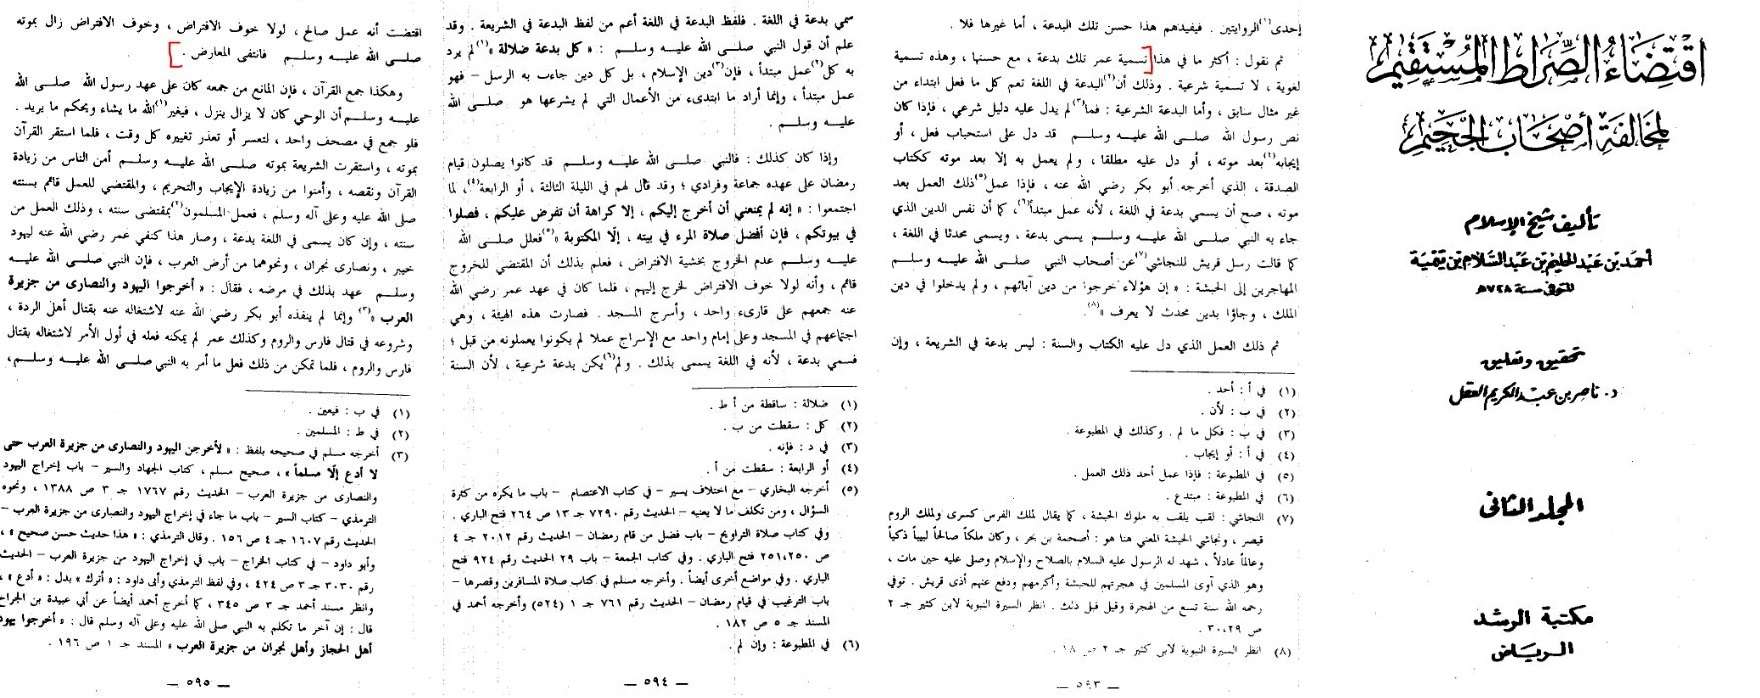 اقتضاء الصراط المستقيم
لمخالفة أصحاب الجحيم
تأليف شيخ الإسلام
أحمد بن عبد الحليم بن عبد السلام بن تيمية
المتوفى سنة ٧٢٨هـ
تحقيق وتعليق
د. ناصر بن عبد الكريم العقل
المجلد الثاني
مكتبة الرشد
الرياض
إحدى(١) الروايتين . فيفيدهم هذا حسن تلك البدعة ، أما غيرها فلا .
ثم نقول : أكثر ما في هذا [تسمية عمر تلك بدعة ، مع حسنها ، وهذه تسمية
لغوية ، لا تسمية شرعية . وذلك أن(٢) البدعة في اللغة تعم كل ما فعل ابتداء من
غير مثال سابق ، وأما البدعة الشرعية : فما(٣) لم يدل عليه دليل شرعي ، فإذا كان
نص رسول الله صلى الله عليه وسلم قد دل على استحباب فعل ، أو
إيجابه(٤) بعد موته ، أو دل عليه مطلقا ، ولم يعمل به إلا بعد موته ككتاب
الصدقة ، الذي أخرجه أبو بكر رضي الله عنه ، فإذا عمل(٥) ذلك العمل بعد
موته ، صح أن يسمى بدعة في اللغة ، لأنه عمل مبتدأ(٦) ، كما أن نفس الدين الذي
جاء به النبي صلى الله عليه وسلم يسمى بدعة ، ويسمى محدثا في اللغة ،
كما قالت رسل قريش للنجاشي(٧) عن أصحاب النبي صلى الله عليه وسلم
المهاجرين إلى الحبشة : « إن هؤلاء خرجوا من دين آبائهم ، ولم يدخلوا في دين
الملك ، وجاؤا بدين محدث لا يعرف »(٨) .
ثم ذلك العمل الذي دل عليه الكتاب والسنة : ليس بدعة في الشريعة ، وإن
(١) في أ : أحد .
(٢) في ب : لأن .
(٣) في ب : فكل ما لم . وكذلك في المطبوعة .
(٤) في أ : أو إيجاب .
(٥) في المطبوعة : فإذا عمل أحد ذلك العمل .
(٦) في المطبوعة : مبتدع .
(٧) النجاشي : لقب يلقب به ملوك الحبشة ، كما يقال لملك الفرس كسرى ولملك الروم
قيصر ، ونجاشي الحبشة المعني هنا هو : أصحمة بن بحر ، وكان ملكاً صالحاً لبيباً ذكياً
وعالماً عادلاً ، شهد له الرسول عليه السلام بالصلاح والإسلام وصلى عليه حين مات ،
وهو الذي آوى المسلمين في هجرتهم للحبشة وأكرمهم ودفع عنهم أذى قريش . توفي
رحمه الله سنة تسع من الهجرة وقيل قبل ذلك . انظر السيرة النبوية لابن كثير جـ ٢
ص ٢٩ ، ٣٠ .
(٨) انظر السيرة النبوية لابن كثير جـ ٢ ص ١٨ .
— ٥٩٣ —
سمي بدعة في اللغة . فلفظ البدعة في اللغة أعم من لفظ البدعة في الشريعة . وقد
علم أن قول النبي صلى الله عليه وسلم : « كل بدعة ضلالة »(١) لم يرد
به كل(٢) عمل مبتدأ ، فإن(٣) دين الإسلام ، بل كل دين جاءت به الرسل – فهو
عمل مبتدأ ، وإنما أراد ما ابتدىء من الأعمال التي لم يشرعها هو صلى الله
عليه وسلم .
وإذا كان كذلك : فالنبي صلى الله عليه وسلم قد كانوا يصلون قيام
رمضان على عهده جماعة وفرادي ؛ وقد قال لهم في الليلة الثالثة ، أو الرابعة(٤) ، لما
اجتمعوا : « إنه لم يمنعني أن أخرج إليكم ، إلا كراهة أن تفرض عليكم ، فصلوا
في بيوتكم ، فإن أفضل صلاة المرء في بيته ، إلّا المكتوبة »(٥) فعلل صلى الله
عليه وسلم عدم الخروج بخشية الافتراض ، فعلم بذلك أن المقتضي للخروج
قائم ، وأنه لولا خوف الافتراض لخرج إليهم ، فلما كان في عهد عمر رضي الله
عنه جمعهم على قارىء واحد ، وأسرج المسجد . فصارت هذه الهيئة ، وهي
اجتماعهم في المسجد وعلى إمام واحد مع الإسراج عملا لم يكونوا يعملونه من قبل ؛
فسمي بدعة ، لأنه في اللغة يسمى بذلك . ولم(٦) يكن بدعة شرعية ، لأن السنة
(١) ضلالة : ساقطة من أ ط .
(٢) كل : سقطت من ب .
(٣) في د : فإنه .
(٤) أو الرابعة : سقطت من أ .
(٥) أخرجه البخاري – مع اختلاف يسير – في كتاب الاعتصام – باب ما يكره من كثرة
السؤال ، ومن تكلف ما لا يعنيه – الحديث رقم ٧٢٩٠ جـ ١٣ ص ٢٦٤ فتح الباري .
وفي كتاب صلاة التراويح – باب فضل من قام رمضان – الحديث رقم ٢٠١٢ جـ ٤
ص ٢٥٠ ، ٢٥١ فتح الباري . وفي كتاب الجمعة – باب ٢٩ الحديث رقم ٩٢٤ فتح
الباري . وفي مواضع أخرى أيضاً . وأخرجه مسلم في كتاب صلاة المسافرين وقصرها –
باب الترغيب في قيام رمضان – الحديث رقم ٧٦١ جـ ١ (٥٢٤) وأخرجه أحمد في
المسند جـ ٥ ص ١٨٢ .
(٦) في المطبوعة : وإن لم .
— ٥٩٤ —
اقتضت أنه عمل صالح ، لولا خوف الافتراض ، وخوف الافتراض زال بموته
صلى الله عليه وسلم فانتفى المعارض .]
وهكذا جمع القرآن ، فإن المانع من جمعه كان على عهد رسول الله صلى الله
عليه وسلم أن الوحي كان لا يزال ينزل ، فيغير(١) الله ما يشاء ويحكم ما يريد .
فلو جمع في مصحف واحد ، لتعسر أو تعذر تغييره كل وقت ، فلما استقر القرآن
بموته ، واستقرت الشريعة بموته صلى الله عليه وسلم أمن الناس من زيادة
القرآن ونقصه ، وأمنوا من زيادة الإيجاب والتحريم ، والمقتضي للعمل قائم بسنته
صلى الله عليه وعلى آله وسلم ، فعمل المسلمون(٢) بمقتضى سنته ، وذلك العمل من
سنته ، وإن كان يسمى في اللغة بدعة ، وصار هذا كنفي عمر رضي الله عنه ليهود
خيبر ، ونصارى نجران ، ونحوهما من أرض العرب ، فإن النبي صلى الله عليه
وسلم عهد بذلك في مرضه ، فقال : « أخرجوا اليهود والنصارى من جزيرة
العرب »(٣) وإنما لم ينفذه أبو بكر رضي الله عنه لاشتغاله عنه بقتال أهل الردة ،
وشروعه في قتال فارس والروم وكذلك عمر لم يمكنه فعله في أول الأمر لاشتغاله بقتال
فارس والروم ، فلما تمكن من ذلك فعل ما أمر به النبي صلى الله عليه وسلم ،
(١) في ب : فيعين .
(٢) في ط : المسلمين .
(٣) أخرجه مسلم في صحيحه بلفظ : « لأخرجن اليهود والنصارى من جزيرة العرب حتى
لا أدع إلّا مسلماً » ، صحيح مسلم ، كتاب الجهاد والسير – باب إخراج اليهود
والنصارى من جزيرة العرب – الحديث رقم ١٧٦٧ جـ ٣ ص ١٣٨٨ ، ونحوه
الترمذي – كتاب السير – باب ما جاء في إخراج اليهود والنصارى من جزيرة العرب –
الحديث رقم ١٦٠٧ جـ ٤ ص ١٥٦ . وقال الترمذي : « هذا حديث حسن صحيح » ،
وأبو داود – في كتاب الخراج – باب في إخراج اليهود من جزيرة العرب – الحديث
رقم ٣٠٣٠ جـ ٣ ص ٤٢٤ ، وفي لفظ الترمذي وأبي داود : « أترك » بدل : « أدع » ،
وانظر مسند أحمد جـ ٣ ص ٣٤٥ ، كما أخرج أحمد أيضاً عن أبي عبيدة بن الجراح
قال : إن آخر ما تكلم به النبي صلى الله عليه وعلى آله وسلم قال : « أخرجوا يهود
أهل الحجاز وأهل نجران من جزيرة العرب » المسند جـ ١ ص ١٩٦ .
— ٥٩٥ —